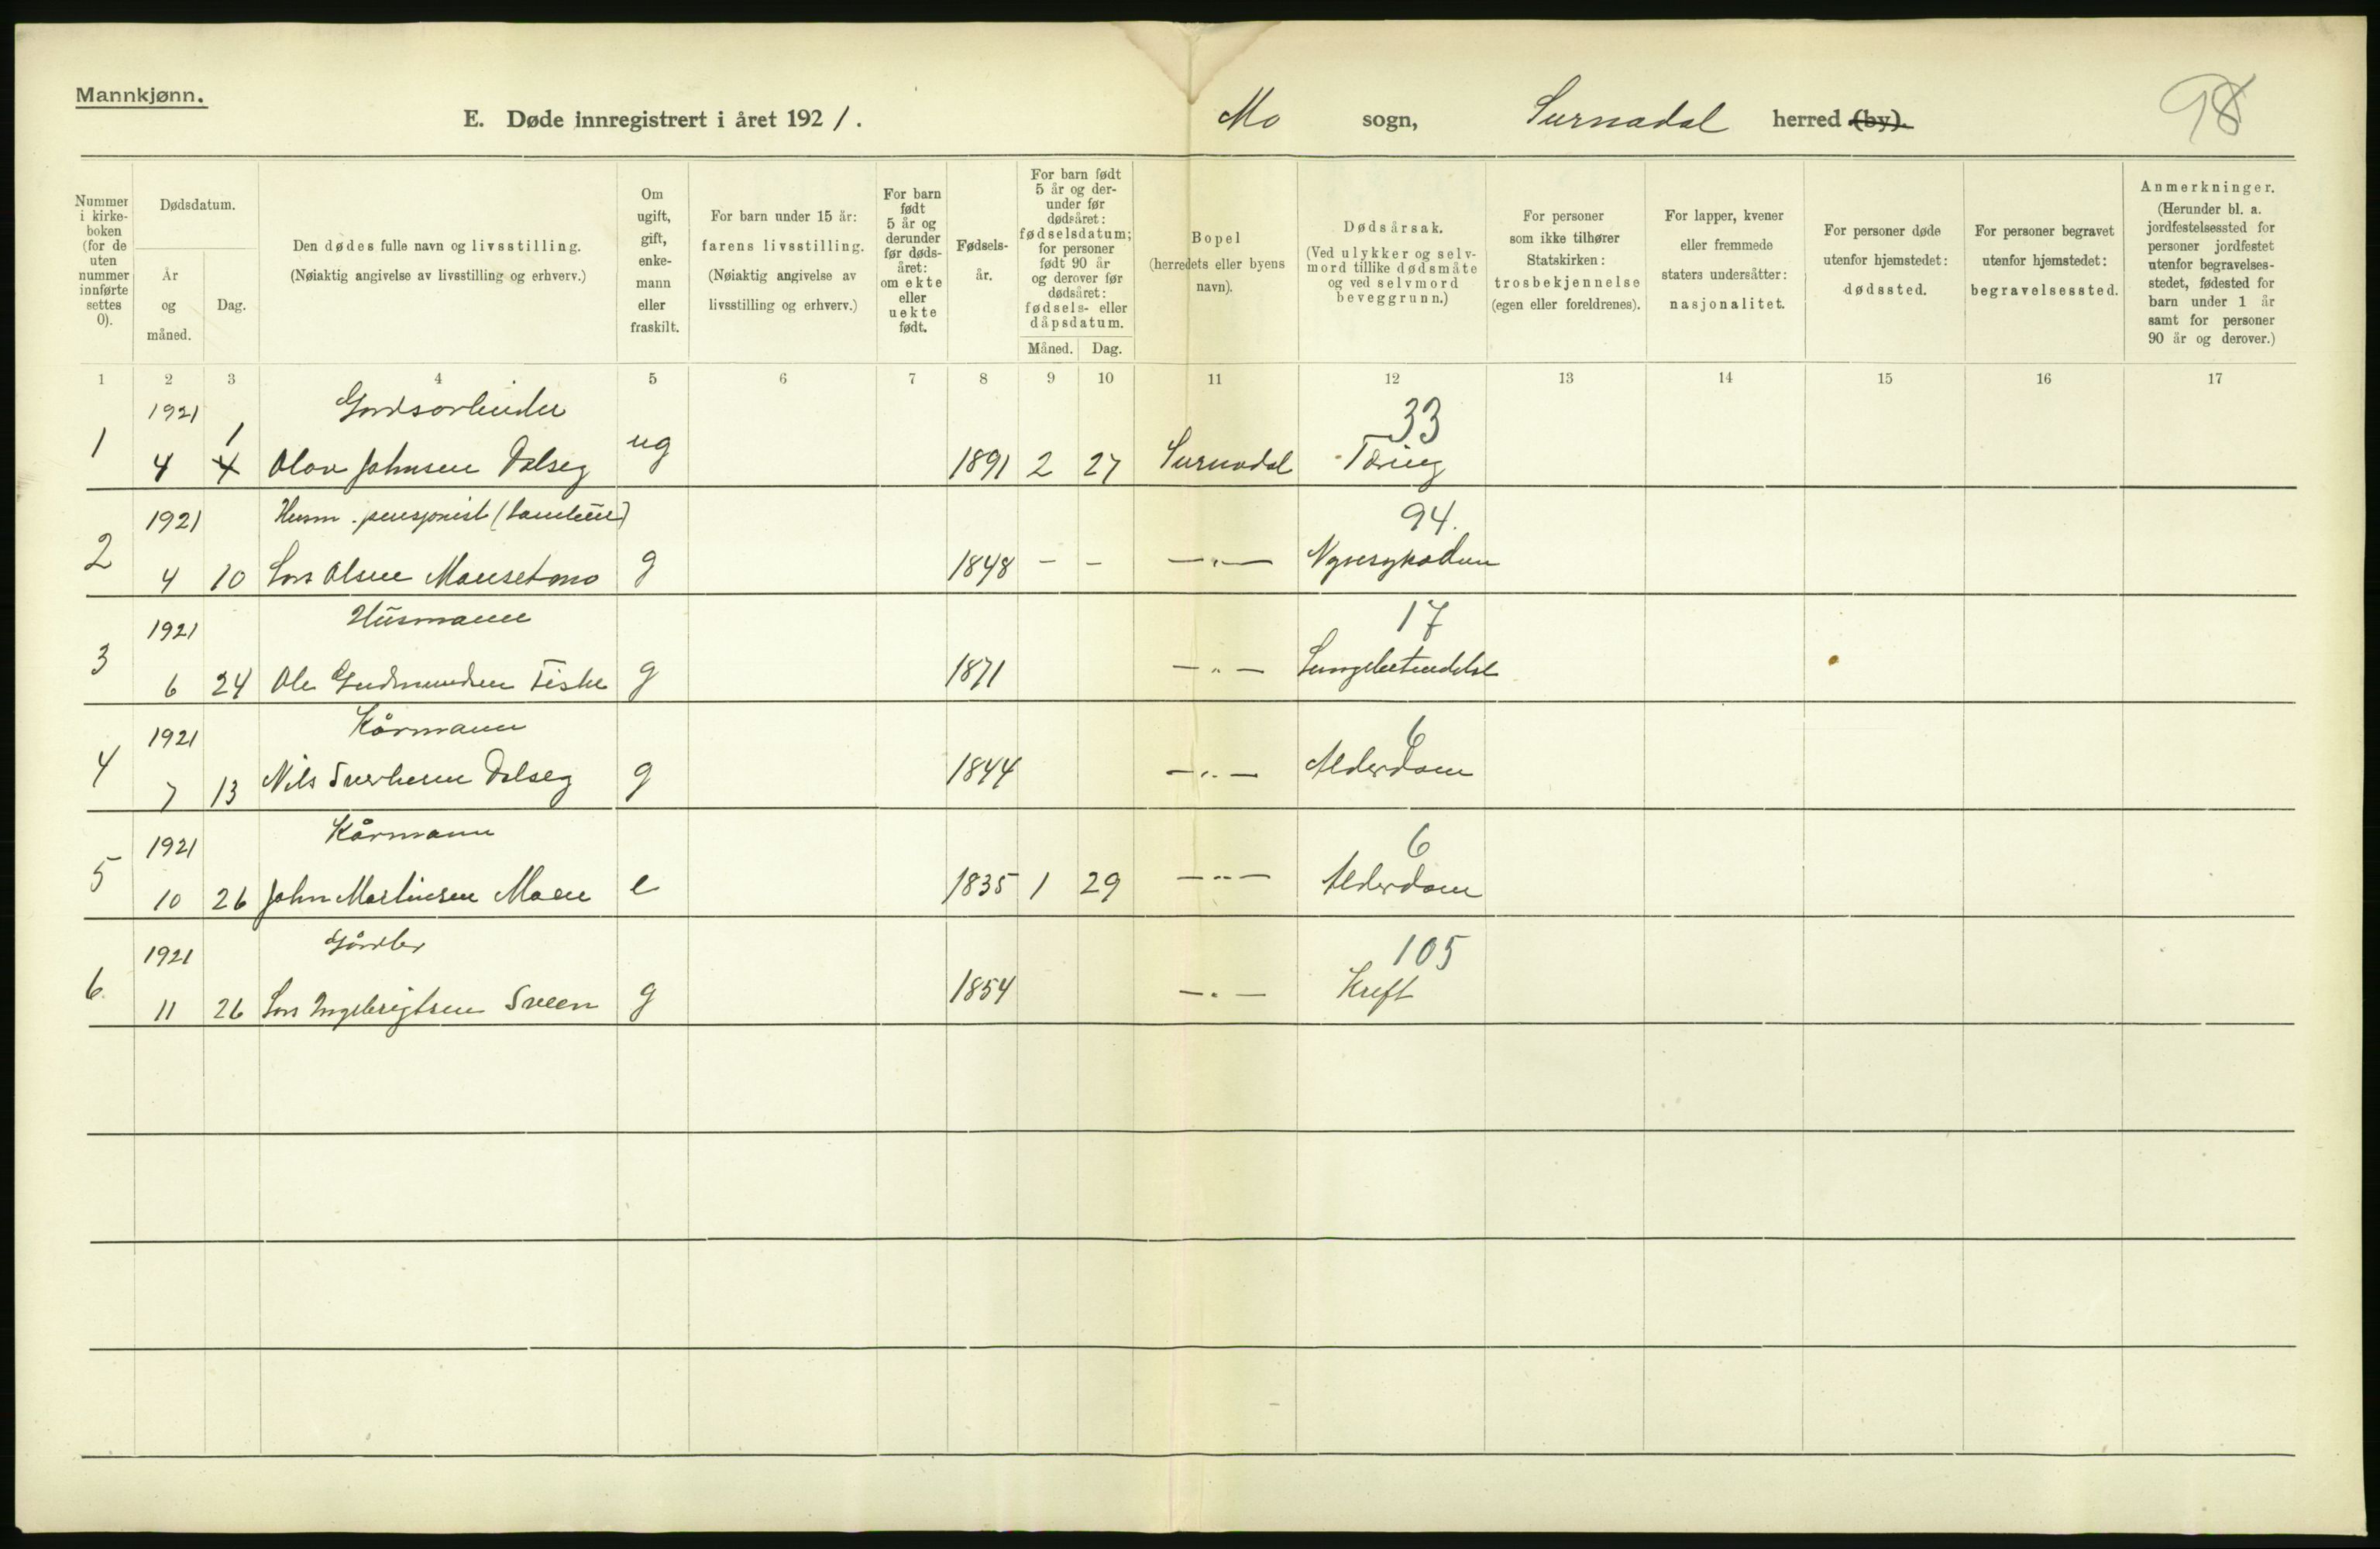 Mannkjønn.
E. Døde innregistrert i året 1921. Mo sogn, Surnadal herred (by). 98
Nummer i kirkeboken (for de uten nummer innførte settes 0).
Dødsdatum.
År og måned.
Dag.
Den dødes fulle navn og livsstilling.
(Nøiaktig angivelse av livsstilling og erhverv.)
Om ugift, gift, enkemann eller fraskilt.
For barn under 15 år:
farens livsstilling.
(Nøiaktig angivelse av livsstilling og erhverv.)
For barn født 5 år og derunder før dødsåret: om ekte eller uekte født.
Fødselsår.
For barn født 5 år og derunder før dødsåret: fødselsdatum; for personer født 90 år og derover før dødsåret: fødsels- eller dåpsdatum.
Måned. Dag.
Bopel
(herredets eller byens navn).
Dødsårsak.
(Ved ulykker og selvmord tillike dødsmåte og ved selvmord beveggrunn.)
For personer som ikke tilhører Statskirken: trosbekjennelse (egen eller foreldrenes).
For lapper, kvener eller fremmede staters undersåtter: nasjonalitet.
For personer døde utenfor hjemstedet: dødssted.
For personer begravet utenfor hjemstedet: begravelsessted.
Anmerkninger.
(Herunder bl. a. jordfestelsessted for personer jordfestet utenfor begravelsesstedet, fødested for barn under 1 år samt for personer 90 år og derover.)
1 2 3 4 5 6 7 8 9 10 11 12 13 14 15 16 17
1921 1 Gardsarbeider 33
1 4 4 Olav Johnsen Dalseg ug 1891 2 27 Surnadal Tæring
1921 Husm. pensjonist 94.
2 4 10 Lars Olsen Mausetmo g 1848 - - —"— Nyresykdom
1921 Husmann 17
3 6 24 Ole Gudmundsen Fiske g 1871 —"— Lungebetendelse
1921 Kårmann 6
4 7 13 Nils Sverkesen Dalseg g 1844 —"— Alderdom
1921 Kårmann 6
5 10 26 John Martinsen Moen e 1835 1 29 —"— Alderdom
1921 Gårdbr 105
6 11 26 Lars Ingebrigtsen Sveen g 1854 —"— Kreft